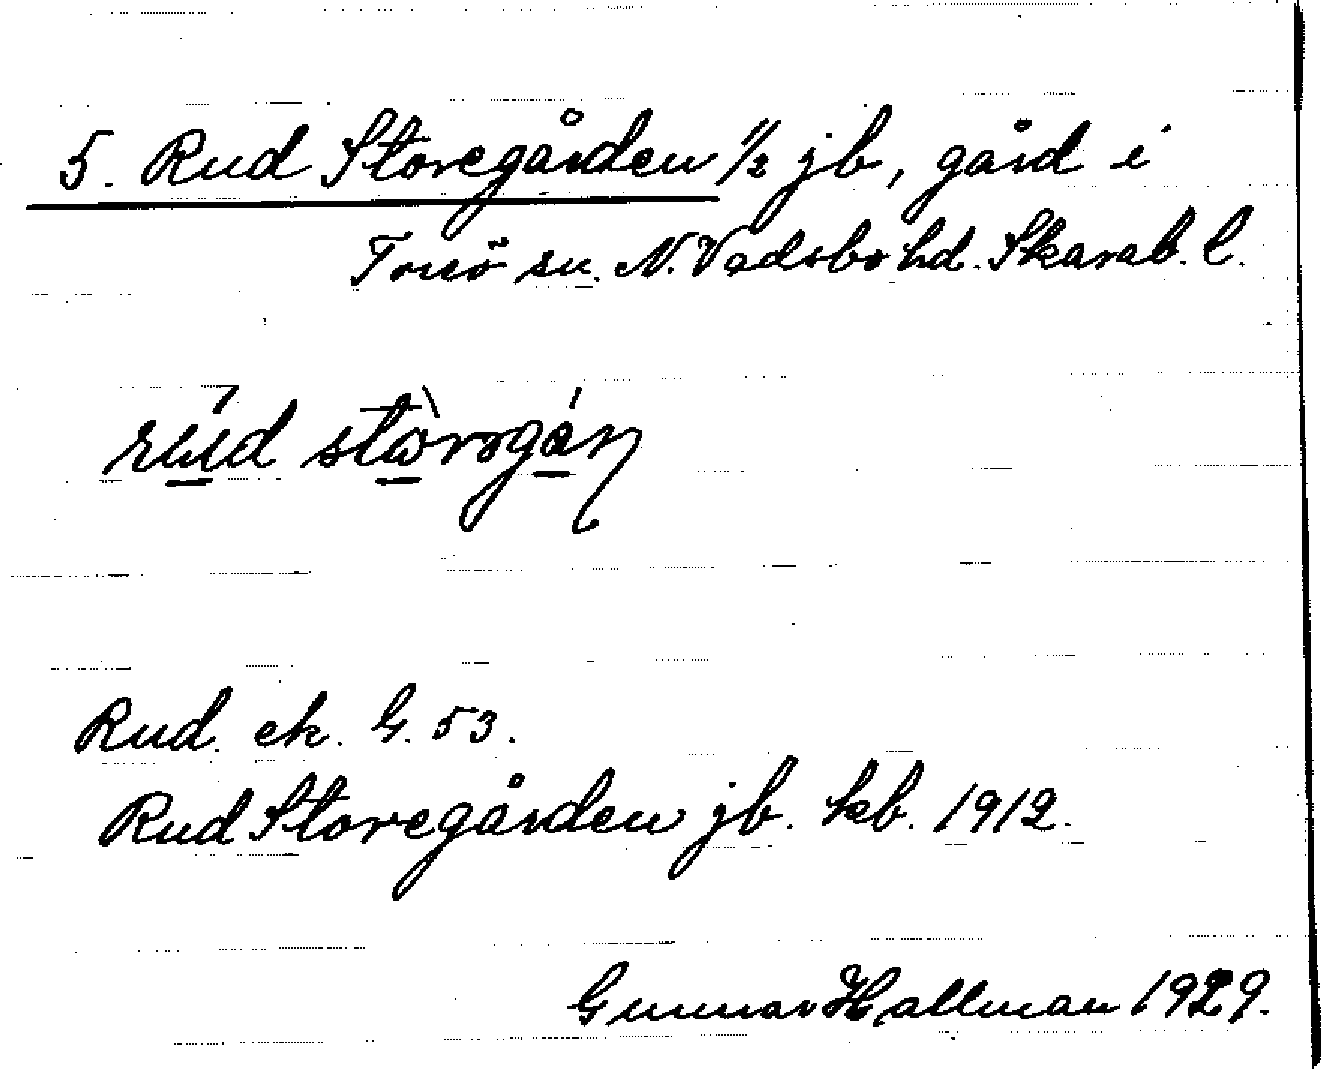 5. Rud Storegården 1/2 jb, gård i
Torsö sn. N. Vadsbo hd. Skarab. l.
Rud. ek. G. 53.
Rud Storegården jb. kb. 1912.
Gunnar Hallman 1929.